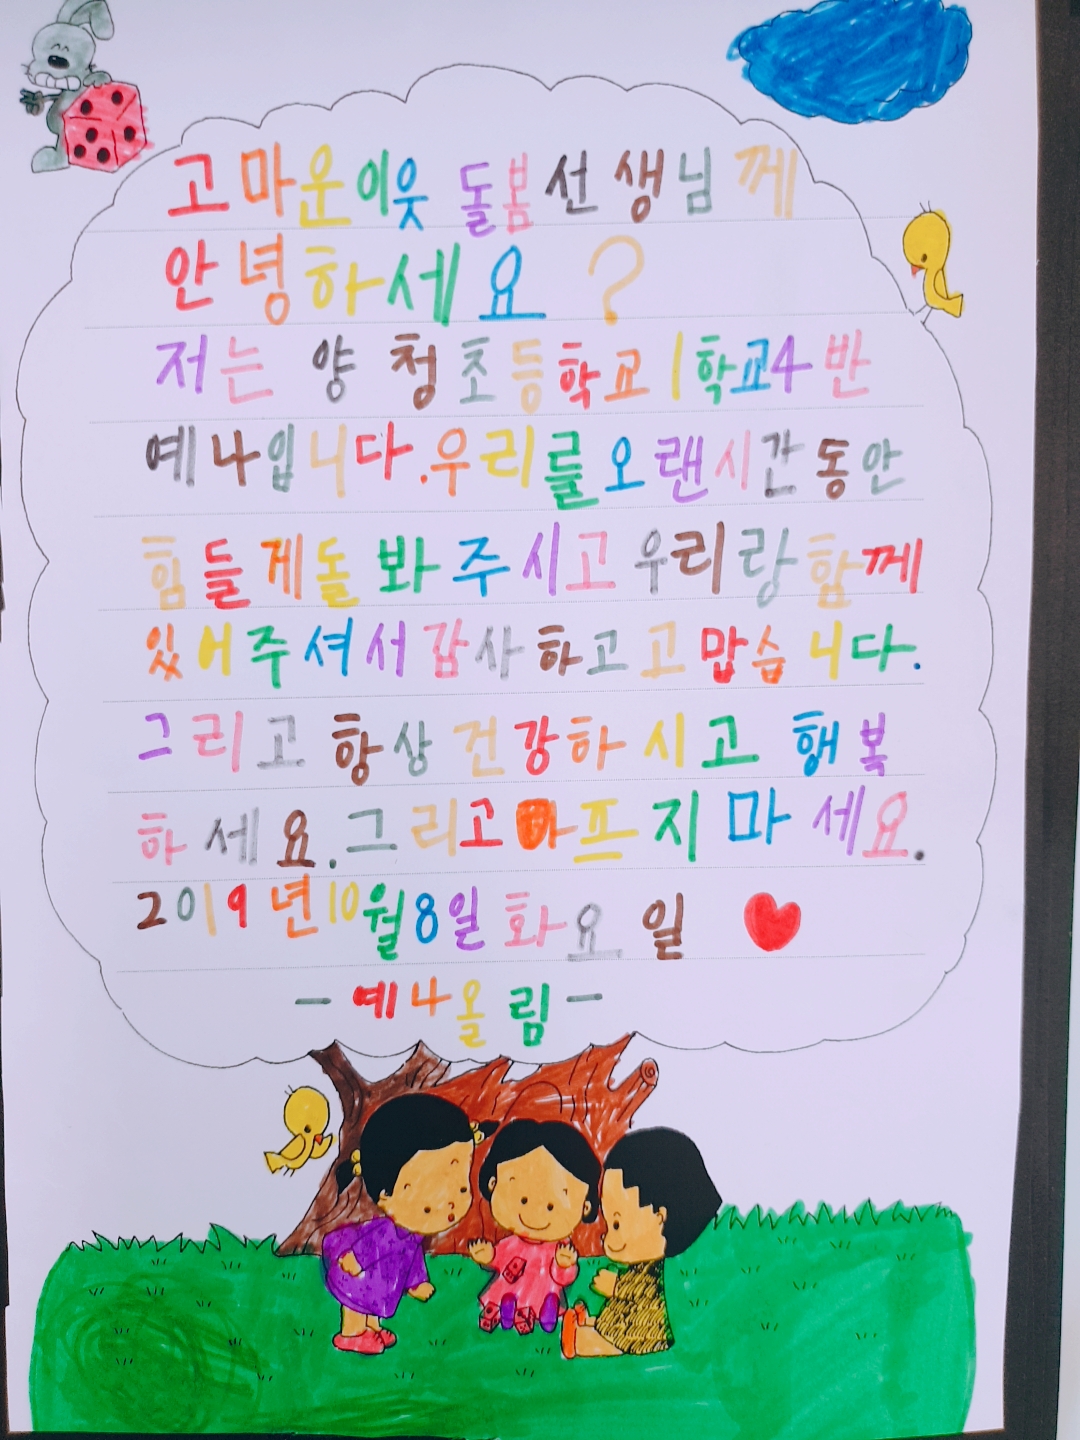 고마운이웃 돌봄선생님께
안녕하세요?
저는 양청초등학교 1학교4반
예나입니다.우리를오랜시간동안
힘들게돌봐주시고우리랑함께
있어주셔서감사하고고맙습니다.
그리고항상건강하시고 행복
하세요.그리고아프지마세요.
2019년10월8일화요일
-예나올림-